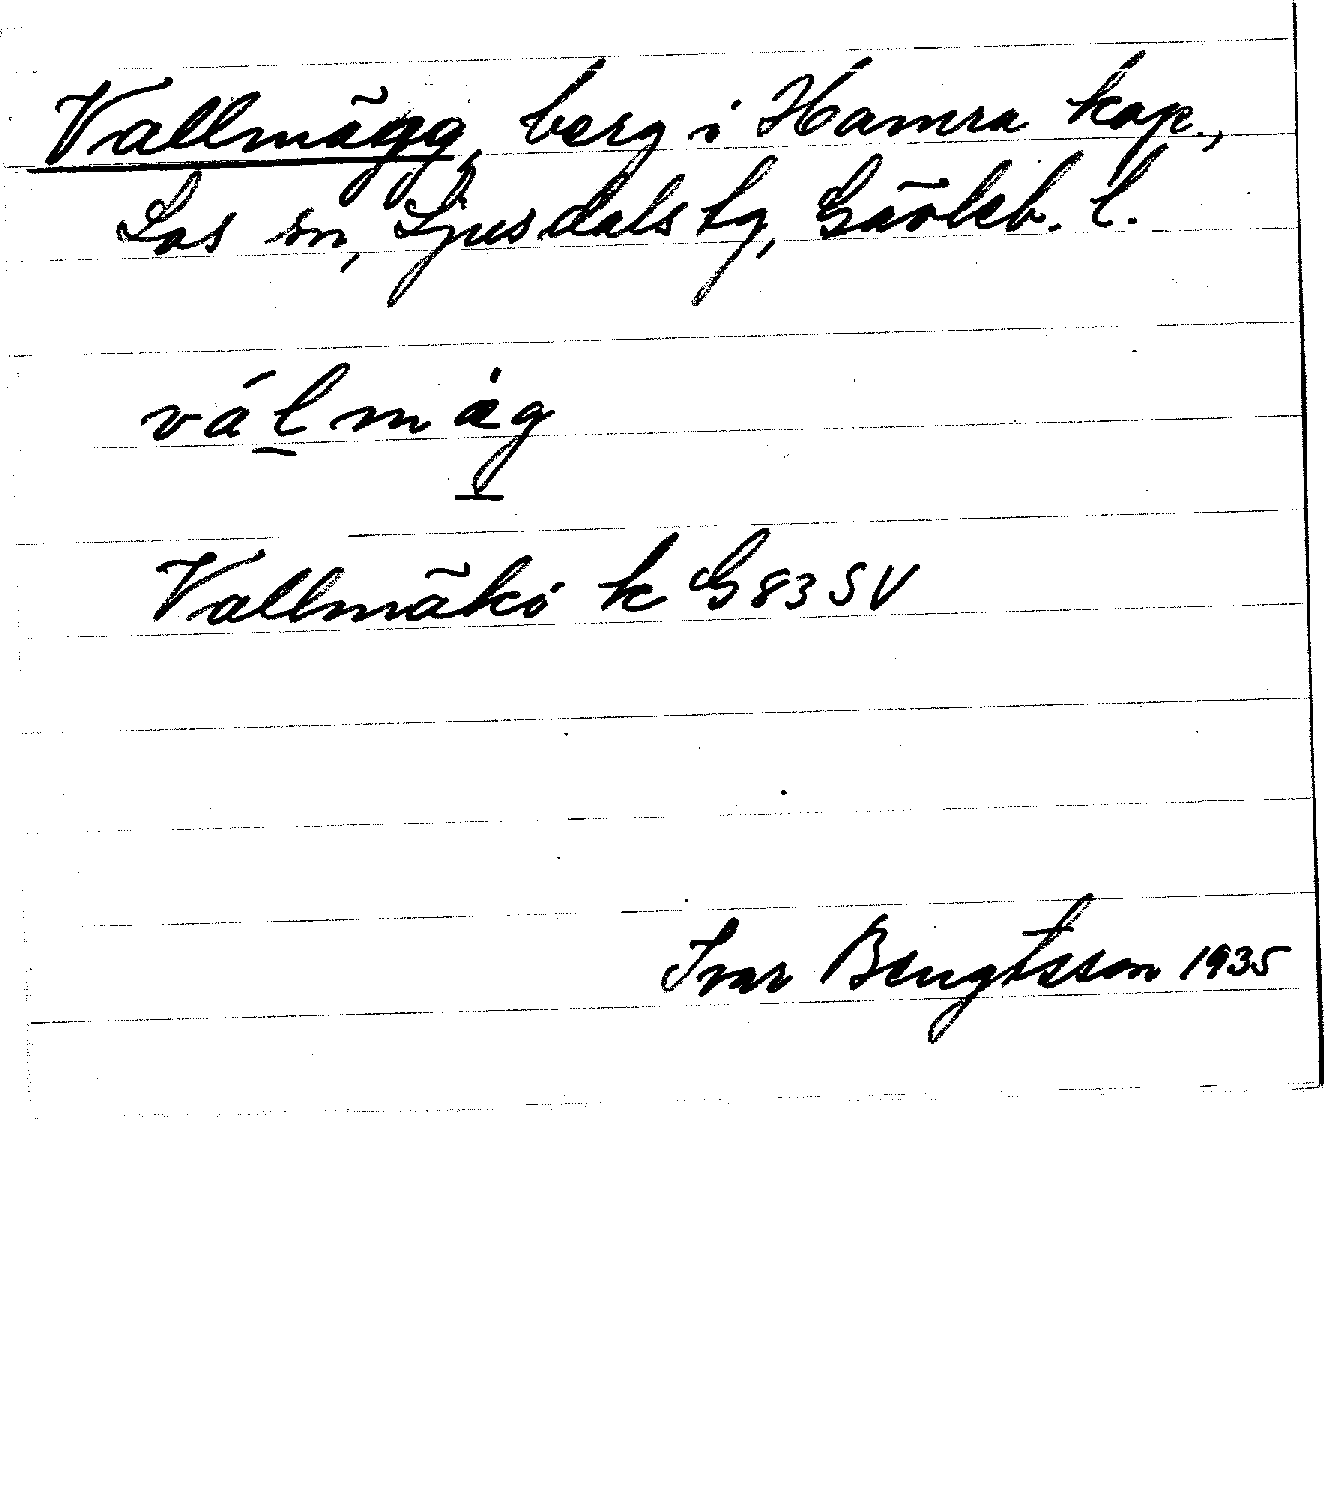 Vallmägg, berg i Hamra kap.,
Los sn, Ljusdals tg, Gävleb. l.
válmäg
Vallmäki k G 83 SV
Ivar Bengtsson 1935